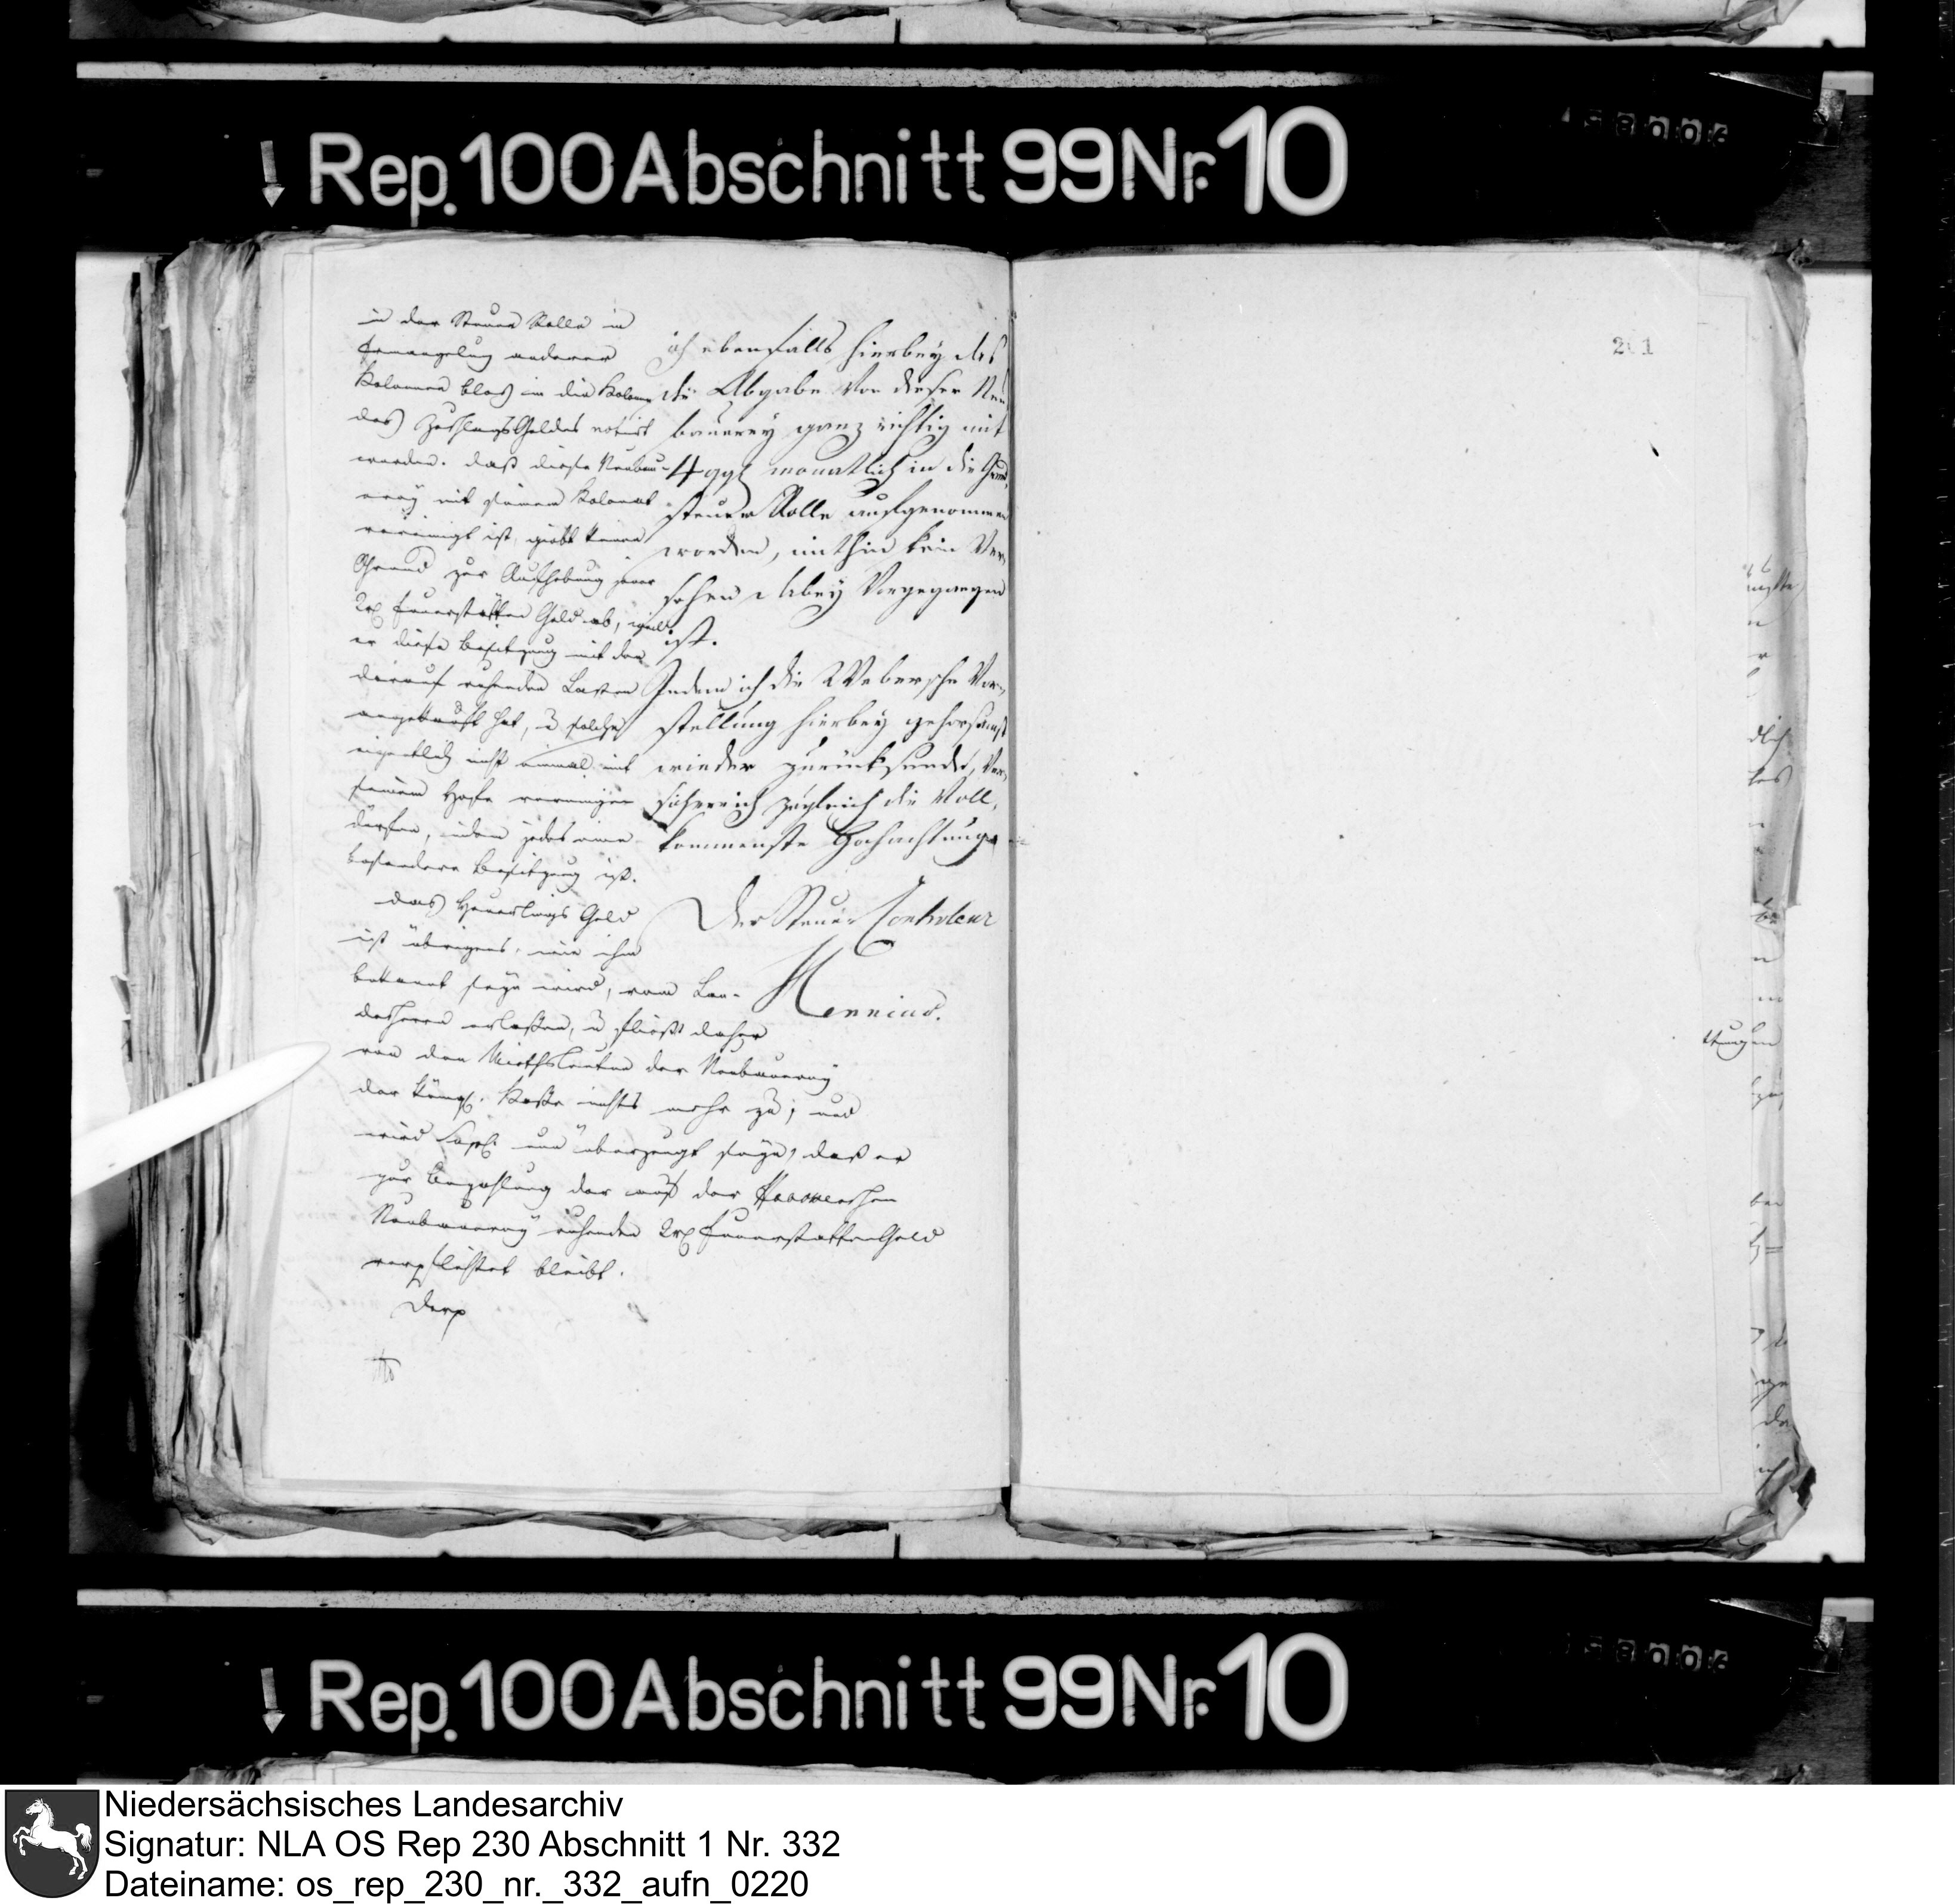 Rep. 100 Abschnitt 99 Nr. 10
in der Steuer Rolle in
Ermangelung anderer
Kolonnen blos in die Kolonne
des Zuschlags Geldes notirt
worden. daß diese Neubau-
erey mit seinem Kolonat
vereinigt ist, giebt keinen
Grund zur Aufhebung jener
2 rh Feuerstätten Geld ab, weil
er diese Besitzung mit den
darauf ruhenden Lasten
angekauft hat, u solche
eigentlich nicht einmal mit
seinem Hofe vereinigen
dürfen, indem jedes eine
besondere Besitzung ist.
das Heuerlings Geld
ist übrigens, wie ihm
bekannt seyn wird, vom Lan-
desherrn erlaßen, u fließt daher
von den Miethsleuten der Neubauerey
der Königl. Kaße nichts mehr zu; und
wird nun überzeugt seyn, daß er
zur Bezahlung der auf der
Neubauerey ruhenden 2 rh Feuerstätten Geld
verpflichtet bleibt.
ich ebenfalls hierbey das
die Abgabe von dieser Neu
bauerey ganz richtig mit
4 ggl monatlich in die Grund
steuer Rolle aufgenommen
worden, mithin kein Ver
sehen dabey vorgegangen
ist.
Indem ich die Webersche Vor-
stellung hierbey gehorsamst
wieder zurücksende, ver-
sichere ich zugleich die voll-
kommenste Hochachtung
Der Steuer Controleur
201
Rep. 100 Abschnitt 99 Nr. 10
Niedersächsisches Landesarchiv
Signatur: NLA OS Rep 230 Abschnitt 1 Nr. 332
Dateiname: os_rep_230_nr._332_aufn_0220